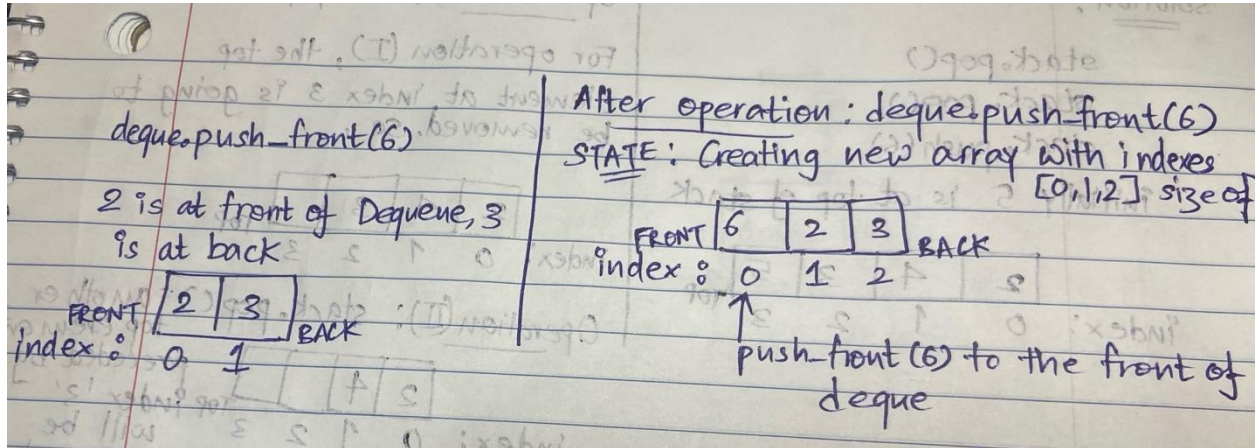 deque.push_front(6)
2 is at front of Dequeue, 3
is at back
FRONT 2 3 BACK
index: 0 1
After operation: deque.push_front(6)
STATE: Creating new array with indexes
[0,1,2] size of
FRONT 6 2 3 BACK
index: 0 1 2
push_front (6) to the front of
deque